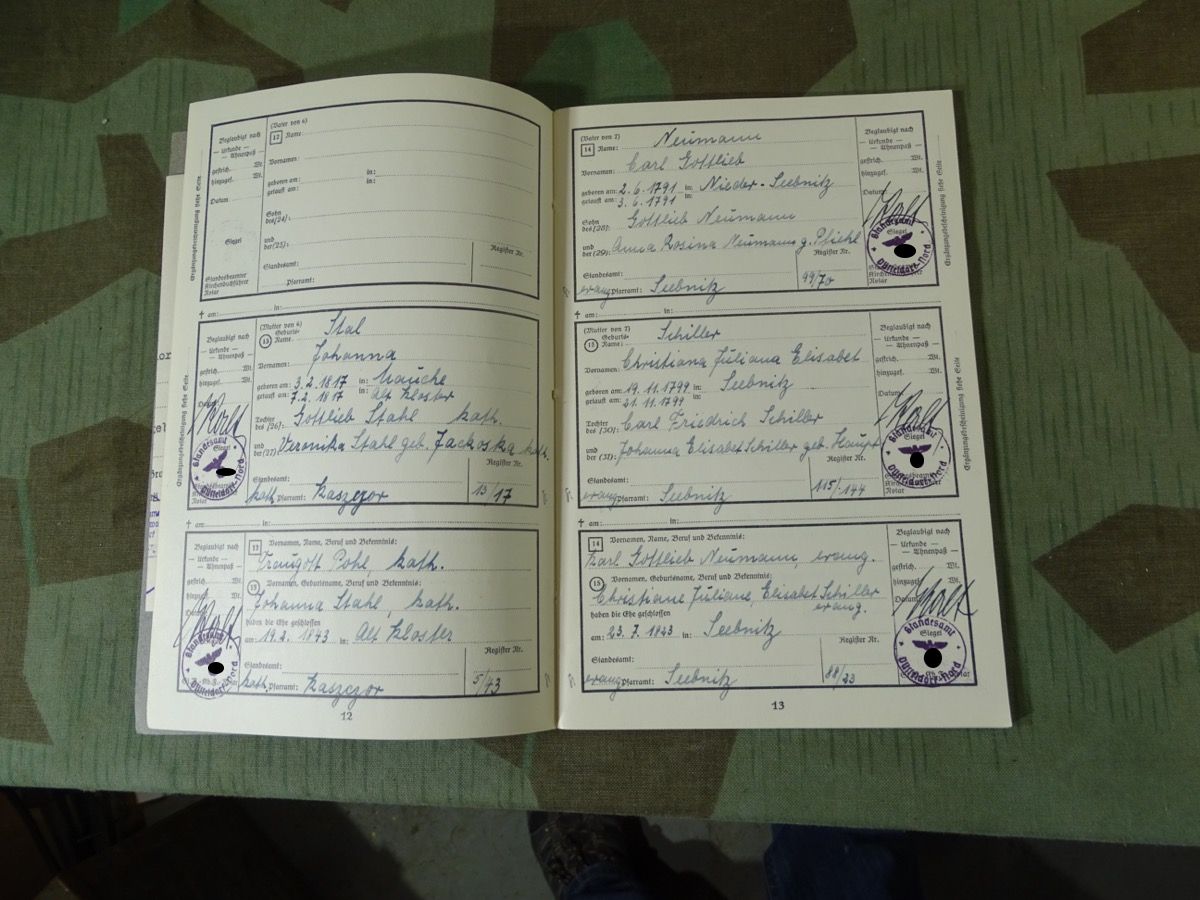 Beglaubigt nach
— Urkunde —
— Ahnenpaß —
gestrich. Wt.
hinzugef. Wt.
Datum
Siegel
Standesbeamter
Kirchenbuchführer
Notar
Ergänzungsbescheinigung siehe Seite
(Vater von 6)
12 Name:
Vornamen:
geboren am: in:
getauft am: in:
Sohn
des (24):
und
der (25):
Standesamt:
Register Nr.
Pfarramt:
✝ am: in:
Beglaubigt nach
— Urkunde —
— Ahnenpaß —
gestrich. Wt.
hinzugef. Wt.
Datum
Standesamt
Siegel
Düsseldorf-Nord
Notar
Ergänzungsbescheinigung siehe Seite
(Mutter von 6)
13 Geburts-
Name: Stal
Vornamen: Johanna
geboren am: 3.2.1817 in: Mauche
getauft am: 7.2.1817 in: Alt Kloster
Tochter
des (26): Gottlieb Stahl kath.
und
der (27): Veronika Stahl geb. Jackoska kath.
Standesamt:
Register Nr.
kath. Pfarramt: Kaszezor 13/17
✝ am: in:
Beglaubigt nach
— Urkunde —
— Ahnenpaß —
gestrich. Wt.
hinzugef. Wt.
Standesamt
Siegel
Düsseldorf-Nord
12 Vornamen, Name, Beruf und Bekenntnis:
Traugott Pohl kath.
13 Vornamen, Geburtsname, Beruf und Bekenntnis:
Johanna Stahl, kath.
haben die Ehe geschlossen
am: 19.2.1843 in: Alt Kloster
Register Nr.
Standesamt:
kath. Pfarramt: Kaszezor 5/43
12
(Vater von 7)
14 Name: Neumann
Vornamen: Carl Gottlieb
geboren am: 2.6.1791 in: Nieder-Seebnitz
getauft am: 3.6.1791 in:
Sohn
des (28): Gottlieb Neumann
und
der (29): Anna Rosina Neumann g. Pliehl
Register Nr.
Standesamt:
evang. Pfarramt: Seebnitz 99/70
✝ am: in:
Beglaubigt nach
— Urkunde —
— Ahnenpaß —
gestrich. Wt.
hinzugef. Wt.
Datum
Standesamt
Siegel
Düsseldorf-Nord
Kirchenbuchführer
Notar
Ergänzungsbescheinigung siehe Seite
(Mutter von 7)
15 Geburts-
Name: Schiller
Vornamen: Christiana Juliana Elisabet
geboren am: 19.11.1799 in: Seebnitz
getauft am: 21.11.1799 in:
Tochter
des (30): Carl Friedrich Schiller
und
der (31): Johanna Elisabet Schiller geb. Haupt
Register Nr.
Standesamt:
evang. Pfarramt: Seebnitz 115/144
✝ am: in:
Beglaubigt nach
— Urkunde —
— Ahnenpaß —
gestrich. Wt.
hinzugef. Wt.
Datum
Standesamt
Siegel
Düsseldorf-Nord
Notar
Ergänzungsbescheinigung siehe Seite
14 Vornamen, Name, Beruf und Bekenntnis:
Karl Gottlieb Neumann, evang.
15 Vornamen, Geburtsname, Beruf und Bekenntnis:
Christiane Juliane, Elisabet Schiller
evang.
haben die Ehe geschlossen
am: 23.7.1823 in: Seebnitz
Register Nr.
Standesamt:
evang. Pfarramt: Seebnitz 88/23
Beglaubigt nach
— Urkunde —
— Ahnenpaß —
gestrich. Wt.
hinzugef. Wt.
Datum
Standesamt
Siegel
Düsseldorf-Nord
Notar
13